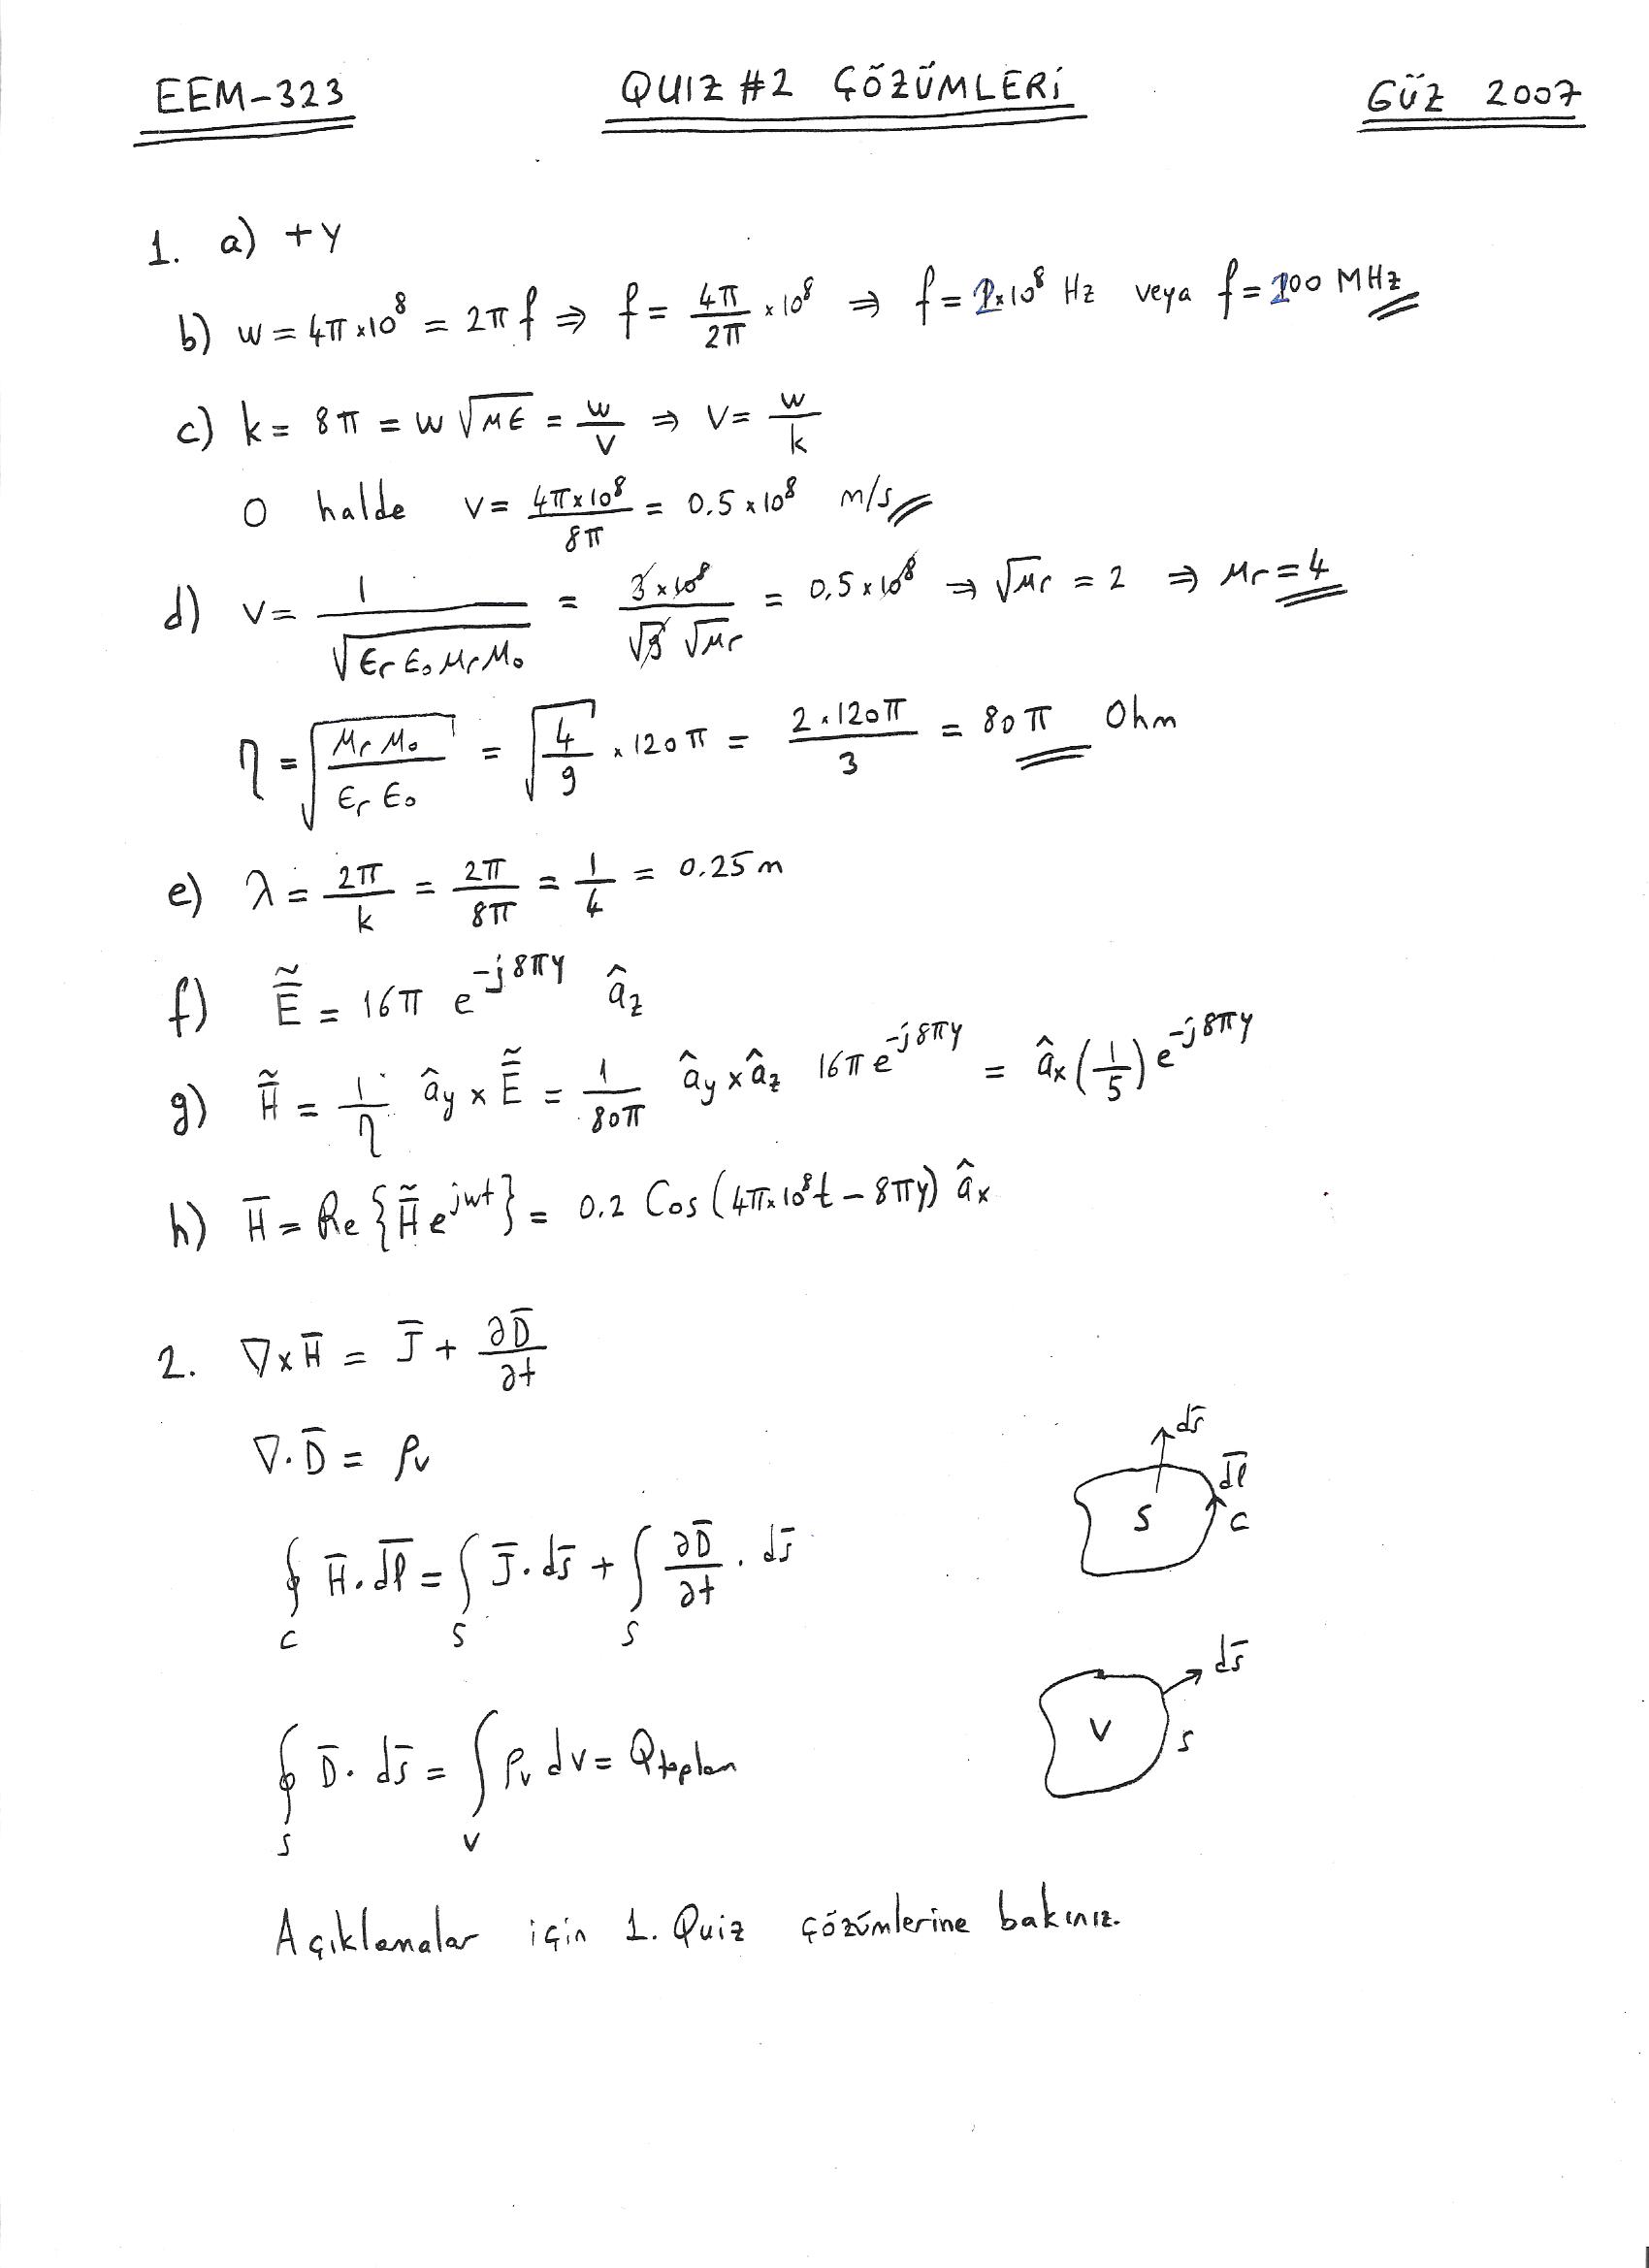 EEM-323 QUIZ #2 ÇÖZÜMLERİ GÜZ 2007
1. a) +y
b) w = 4π×10⁸ = 2πf ⇒ f = 4π/2π × 10⁸ ⇒ f = 2×10⁸ Hz veya f = 200 MHz
c) k = 8π = w √(με) = w/v ⇒ v = w/k
O halde v = 4π×10⁸/8π = 0.5×10⁸ m/s
d) v = 1/√(εr ε₀ μr μ₀) = 3×10⁸/(√9 √μr) = 0,5×10⁸ ⇒ √μr = 2 ⇒ μr = 4
η = √(μr μ₀/εr ε₀) = √(4/9) × 120π = 2×120π/3 = 80π Ohm
e) λ = 2π/k = 2π/8π = 1/4 = 0.25 m
f) Ẽ = 16π e^(-j8πy) âz
g) H̃ = 1/η ây × Ẽ = 1/80π ây × âz 16π e^(-j8πy) = âx (1/5) e^(-j8πy)
h) H̄ = Re{H̃ e^(jwt)} = 0.2 Cos(4π×10⁸t − 8πy) âx
2. ∇×H̄ = J̄ + ∂D̄/∂t
∇·D̄ = ρv
ds̄
dl̄
S
C
∮c H̄·dl̄ = ∫s J̄·ds̄ + ∫s ∂D̄/∂t · ds̄
ds̄
V
S
∮s D̄·ds̄ = ∫v ρv dv = Qtoplam
Açıklamalar için 1. Quiz çözümlerine bakınız.